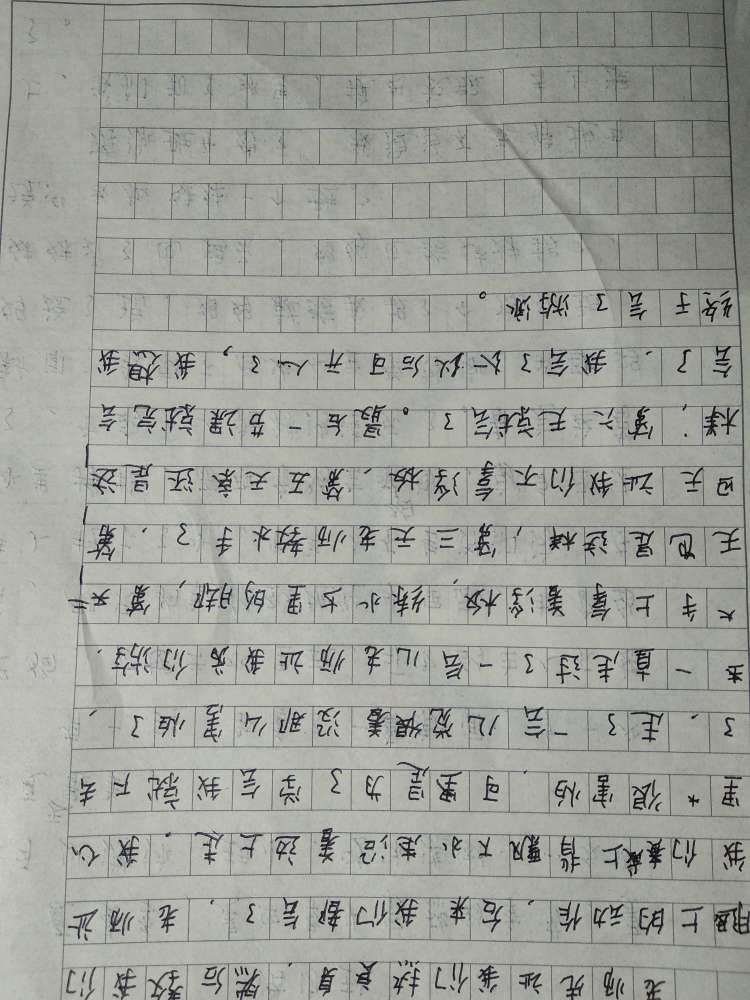 老师先让我们热身,然后教我们
腿上的动作,后来我们都会了,老师让
我们戴上背飘下水走沿着边上走,我心
里很害怕,可是为了学会我就下去
了,走了一会儿觉得没那么害怕了,
一直走过了一会儿老师让我们游
手上拿着浮板,练水里的脚,第二天
天也是这样;第三天老师教水手了,第
四天让我们不拿浮板,第五天还是这
样;第六天就会了。最后一节课就完会
会了,我会了以后可开心了,我想我
终于会了游泳。